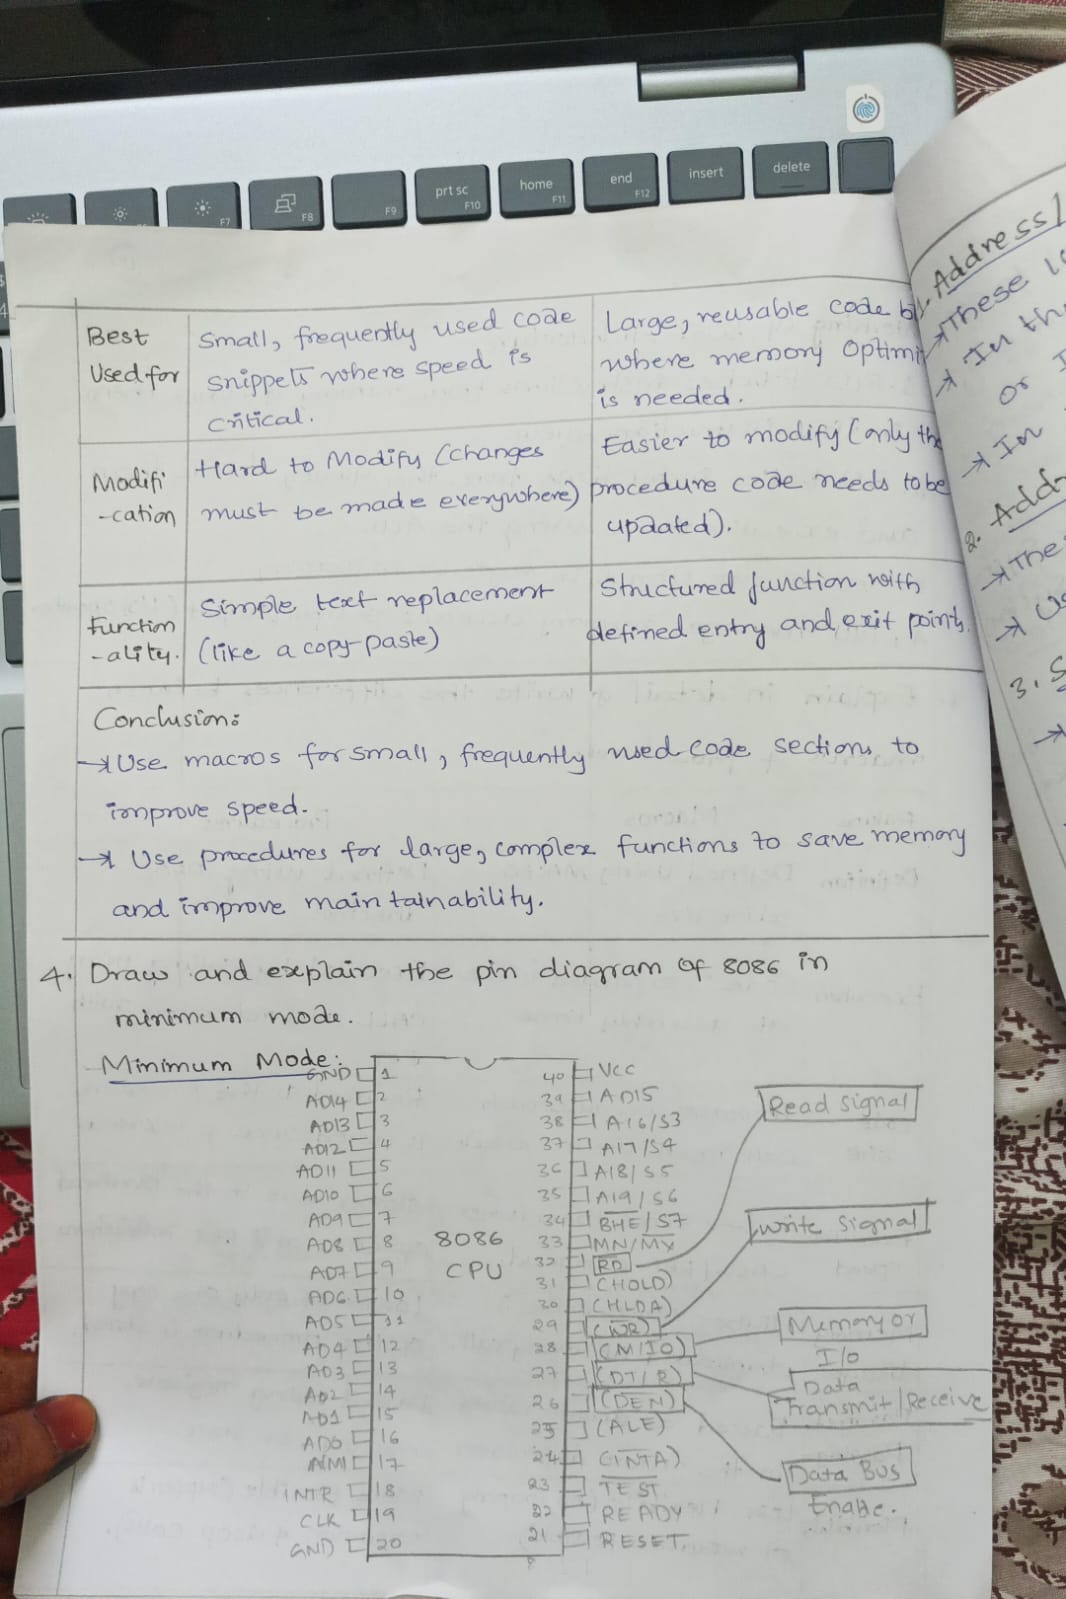 prt sc
home
end
insert
delete
F7
F8
F9
F10
F11
F12
Best
Used for
Small, frequently used code
snippets where speed is
critical.
Large, reusable code
where memory
is needed.
Modifi
-cation
Hard to Modify (changes
must be made everywhere)
Easier to modify (only the
procedure code needs to be
updated).
Function
-ality.
Simple text replacement
(like a copy-paste)
Structured function with
defined entry and exit points.
Conclusion:
→ Use macros for small, frequently used code sections to
improve speed.
→ Use procedures for large, complex functions to save memory
and improve maintainability.
4. Draw and explain the pin diagram of 8086 in
minimum mode.
Minimum Mode:
8086
CPU
GND 1
AD14 2
AD13 3
AD12 4
AD11 5
AD10 6
AD9 7
AD8 8
AD7 9
AD6 10
AD5 11
AD4 12
AD3 13
AD2 14
AD1 15
AD0 16
NMI 17
INTR 18
CLK 19
GND 20
40 Vcc
39 AD15
38 A16/S3
37 A17/S4
36 A18/S5
35 A19/S6
34 BHE/S7
33 MN/MX
32 RD
31 (HOLD)
30 (HLDA)
29 (WR)
28 (M/IO)
27 (DT/R)
26 (DEN)
25 (ALE)
24 (INTA)
23 TEST
22 READY
21 RESET.
Read Signal
Write Signal
Memory or
I/o
Data
Transmit/Receive
Data Bus
Enable.
1. Address/
→ These
→ In
or
→ In
2.
→ The
→
3. S
→